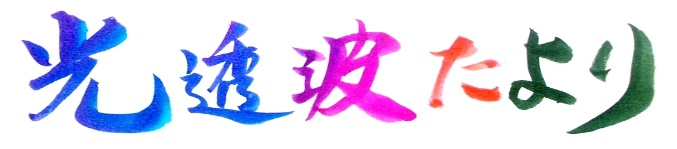 光透波たより